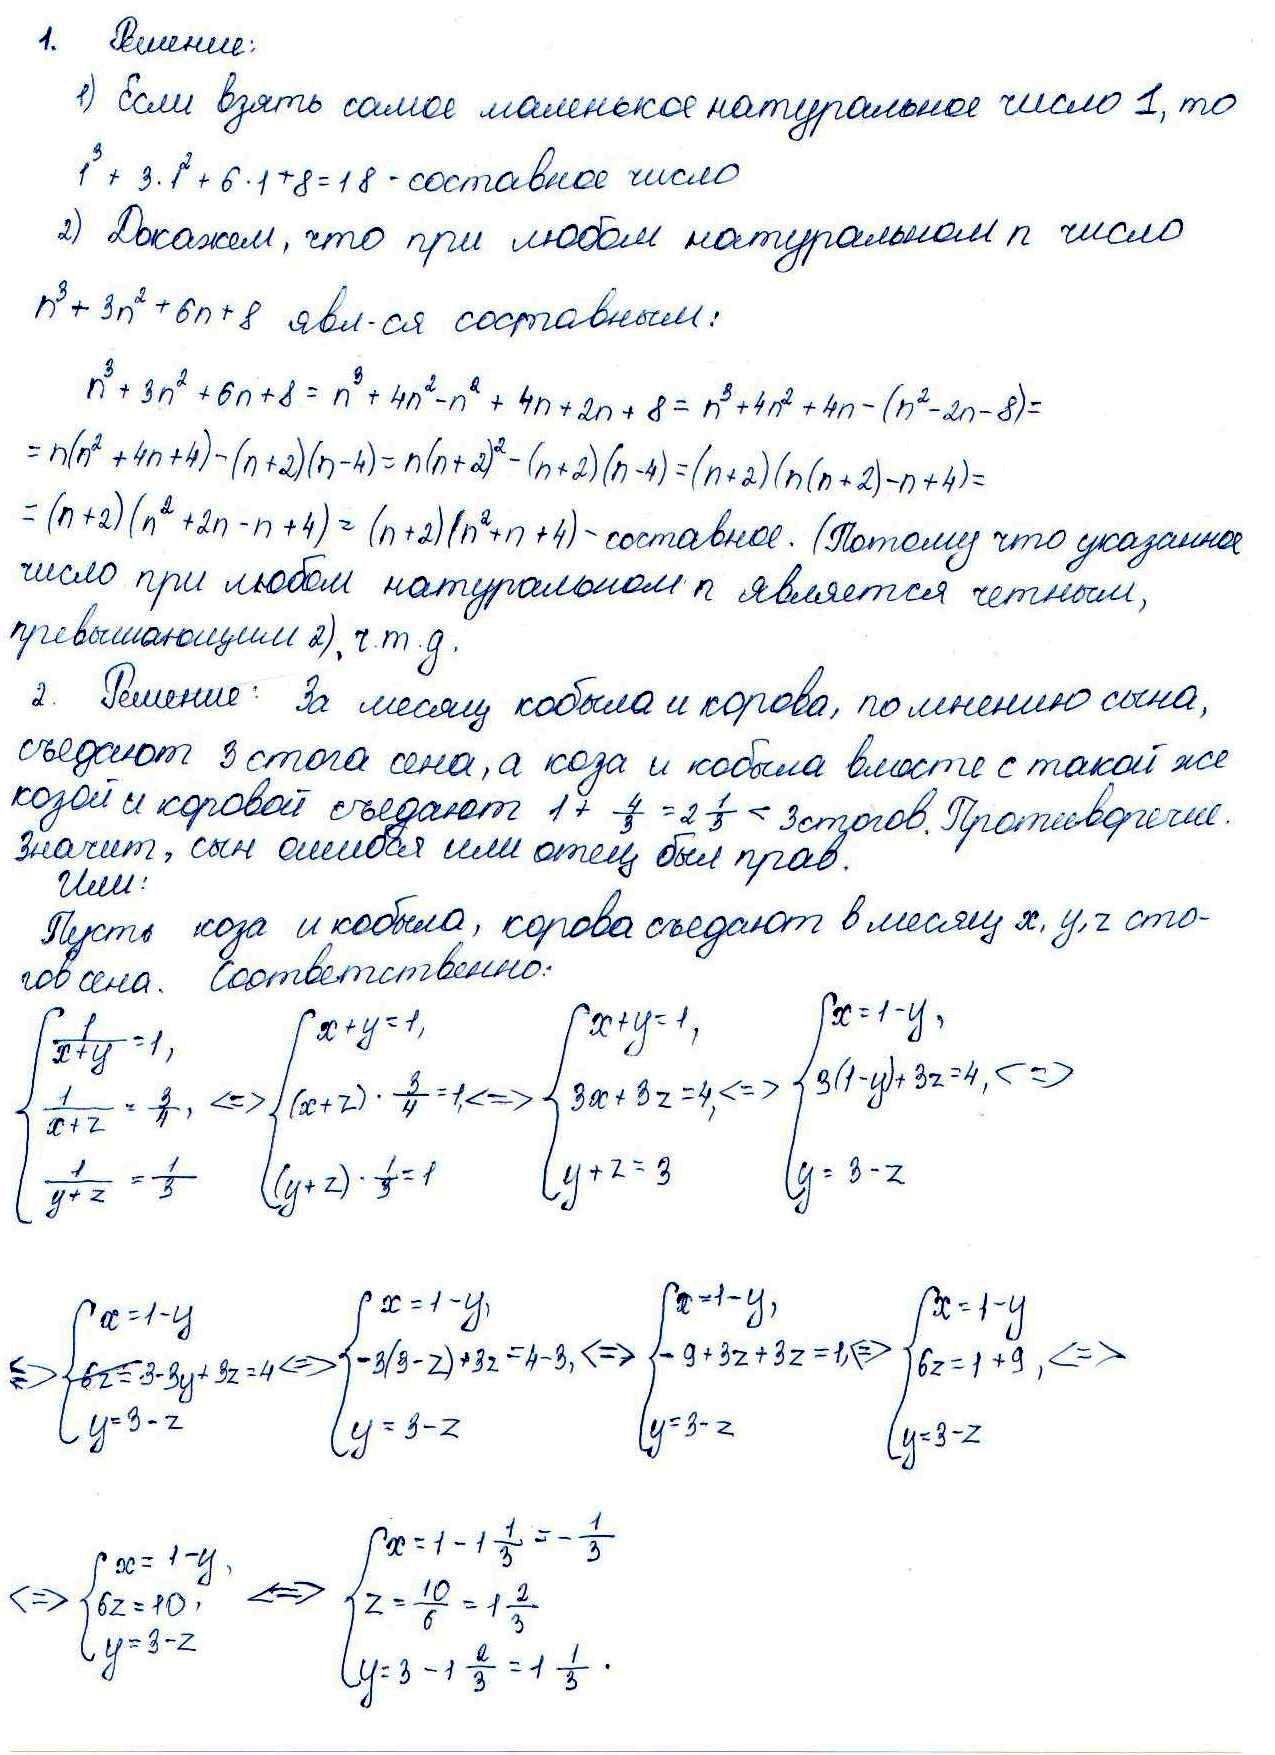 1. Решение:
1) Если взять самое маленькое натуральное число 1, то
1³ + 3·1² + 6·1 + 8 = 18 - составное число
2) Докажем, что при любом натуральном n число
n³ + 3n² + 6n + 8 явл-ся составным:
n³ + 3n² + 6n + 8 = n³ + 4n² - n² + 4n + 2n + 8 = n³ + 4n² + 4n - (n² - 2n - 8) =
= n(n² + 4n + 4) - (n+2)(n-4) = n(n+2)² - (n+2)(n-4) = (n+2)(n(n+2) - n + 4) =
= (n+2)(n² + 2n - n + 4) = (n+2)(n² + n + 4) - составное. (Потому что указанное
число при любом натуральном n является четным,
превышающим 2), ч.т.д.
2. Решение: За месяц кобыла и корова, по мнению сына,
съедают 3 стога сена, а коза и кобыла вместе с такой же
козой и коровой съедают 1 + 4/3 = 2 1/3 < 3 стогов. Противоречие.
Значит, сын ошибся или отец был прав.
Или:
Пусть коза и кобыла, корова съедают в месяц x, y, z сто-
гов сена. Соответственно:
{ 1/(x+y) = 1, { x+y = 1, { x+y = 1, { x = 1-y,
1/(x+z) = 3/4, <=> (x+z) · 3/4 = 1, <=> 3x + 3z = 4, <=> 3(1-y) + 3z = 4, <=>
1/(y+z) = 1/3 (y+z) · 1/3 = 1 y + z = 3 y = 3 - z
{ x = 1-y { x = 1-y, { x = 1-y, { x = 1-y
<=> 6z = 3-3y + 3z = 4 <=> -3(3-z) + 3z = 4-3, <=> -9 + 3z + 3z = 1, <=> 6z = 1 + 9, <=>
y = 3 - z y = 3 - z y = 3 - z y = 3 - z
{ x = 1-y, { x = 1 - 1 1/3 = -1/3
<=> 6z = 10, <=> z = 10/6 = 1 2/3
y = 3 - z y = 3 - 1 2/3 = 1 1/3.